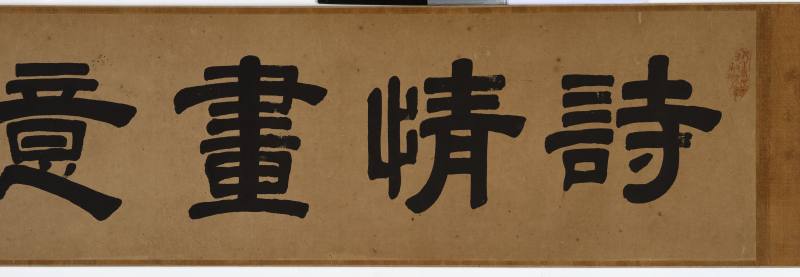 詩情畫意